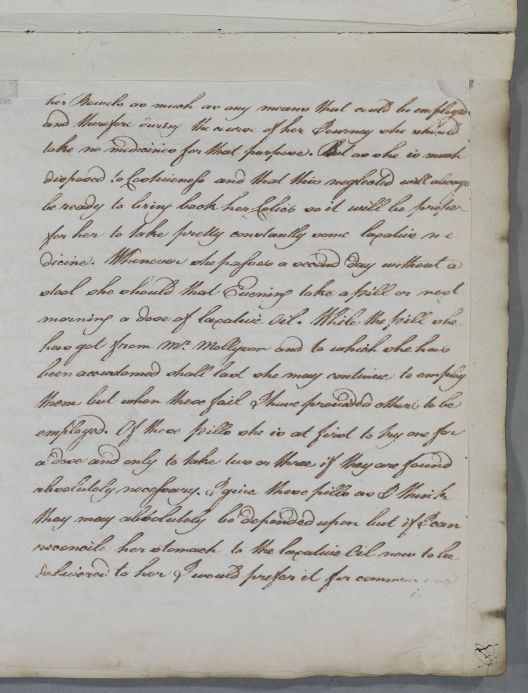 her Bowels as much as any means that could be employed
and therefore during the course of her Journey she should
take no medicines for that purpose. But as she is much
disposed to Costiveness and that this neglected will always
be ready to bring back her Colics so it will be proper
for her to take pretty constantly some laxative me
dicine. Whenever she passes a second Day without a
stool she should that Evening take a pill or next
morning a dose of laxative Oil. While the pill she
has got from Mr. and to which she has
been accustomed shall last she may continue to employ
them but when these fail I have provided others to be
employed. Of these pills she is at first to try one for
a dose and only to take two or three if they are found
absolutely necessary. I give these pills as I think
they may absolutely be depended upon but if I can
reconcile her stomach to the laxative Oil now to be
delivered to her I would prefer it for common